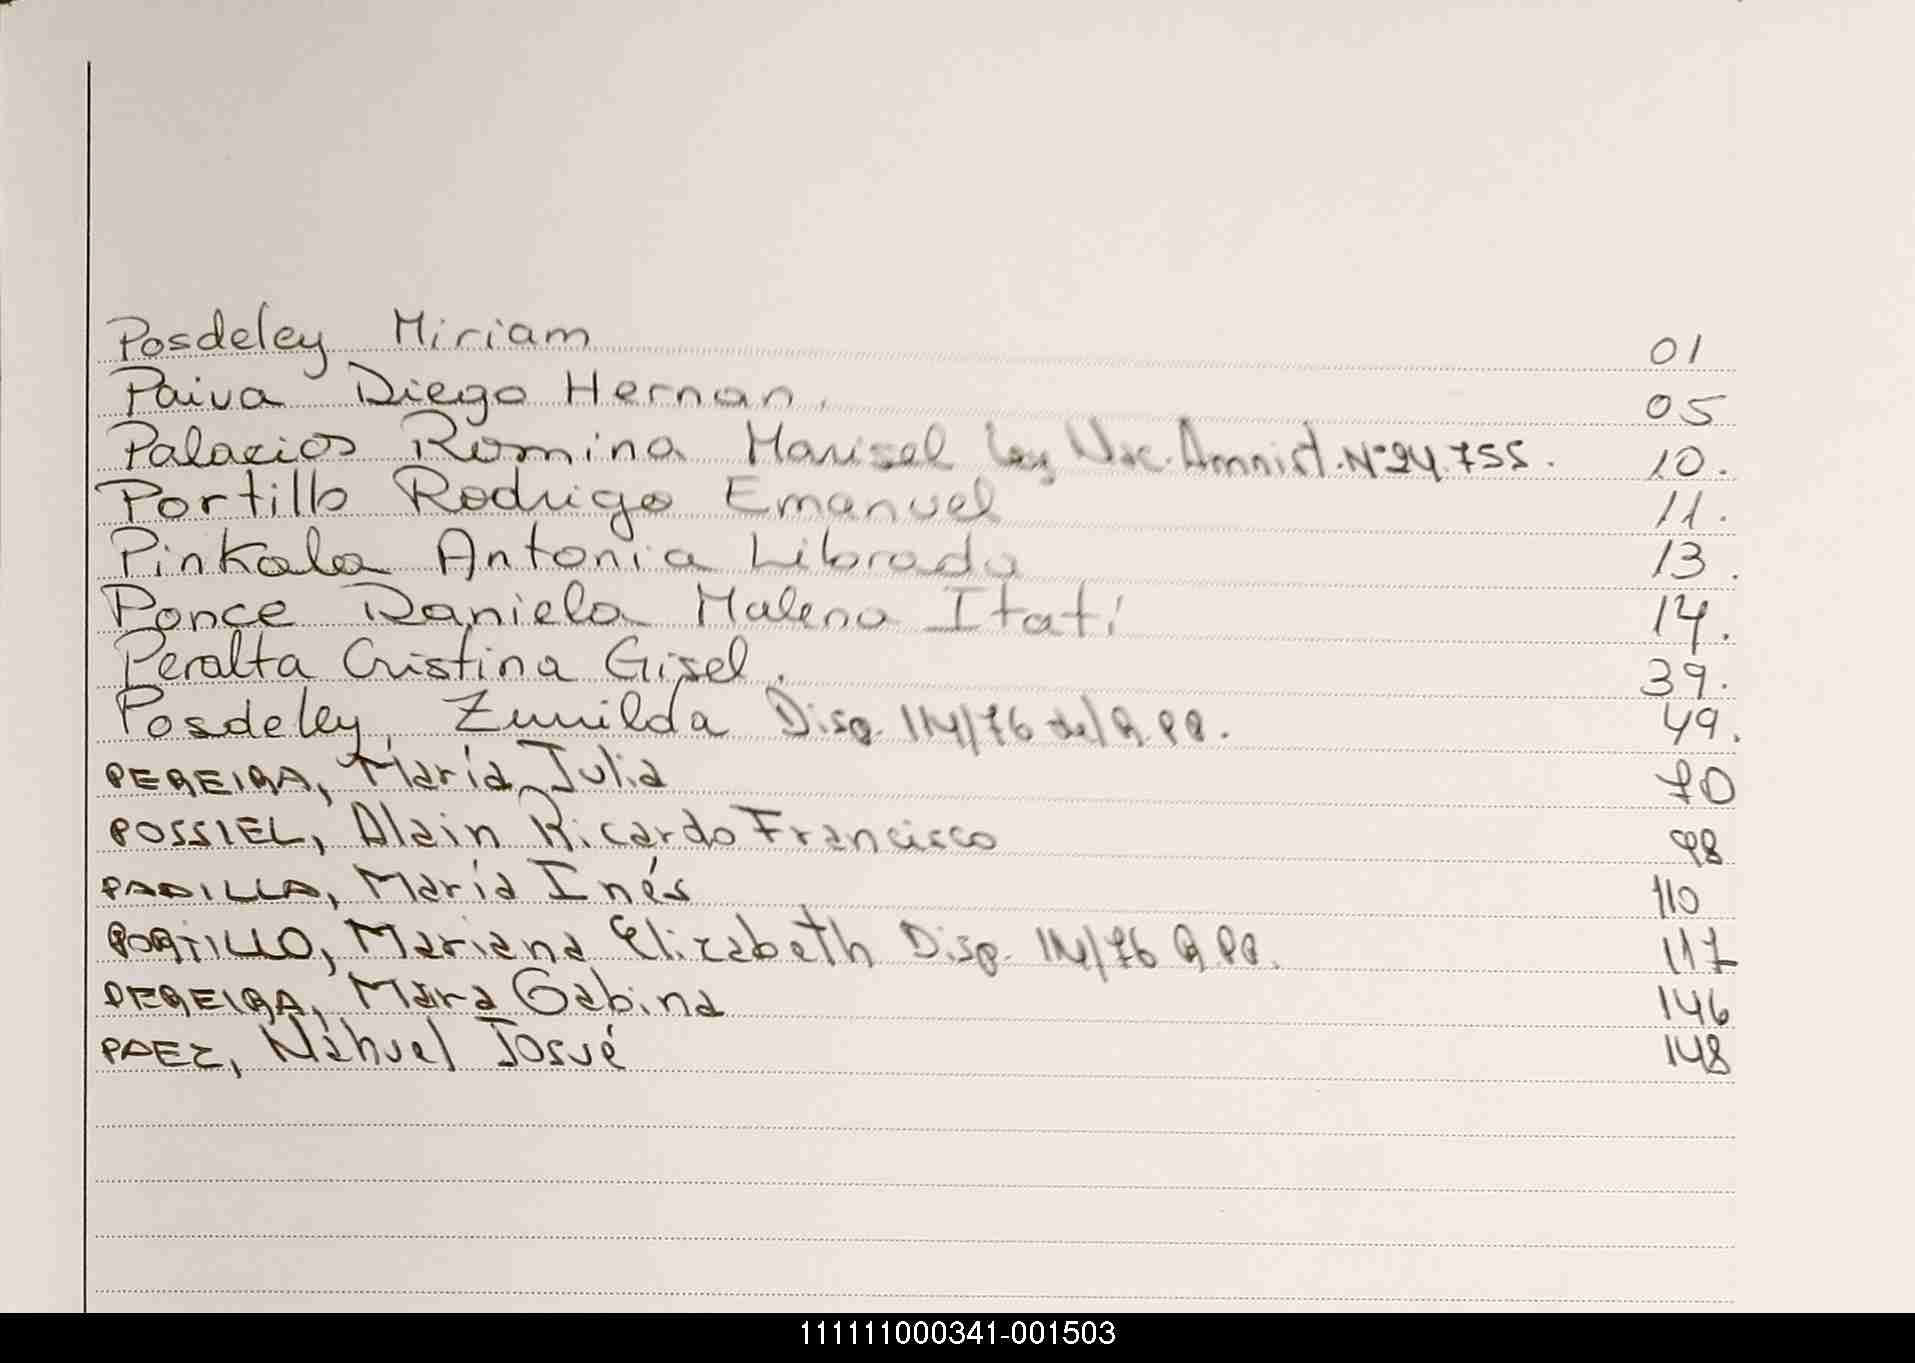 Posdeley Miriam 01
Paiva Diego Hernan. 05
Palacios Romina Marisel Ley Nac. Amnist. Nº 24.755. 10.
Portillo Rodrigo Emanuel 11.
Pinkala Antonia Librada 13.
Ponce Daniela Malena Itatí 14.
Peralta Cristina Gisel. 39.
Posdeley, Zunilda Disp. 114/76 del R.PP. 49.
PEREIRA, María Julia 70
POSSIEL, Alain Ricardo Francisco 98
PADILLA, María Inés 110
PORTILLO, Mariana Elizabeth Disp. 114/76 R.PP. 117
PEREIRA, Mara Gabina 146
PAEZ, Nahuel Josué 148
111111000341-001503